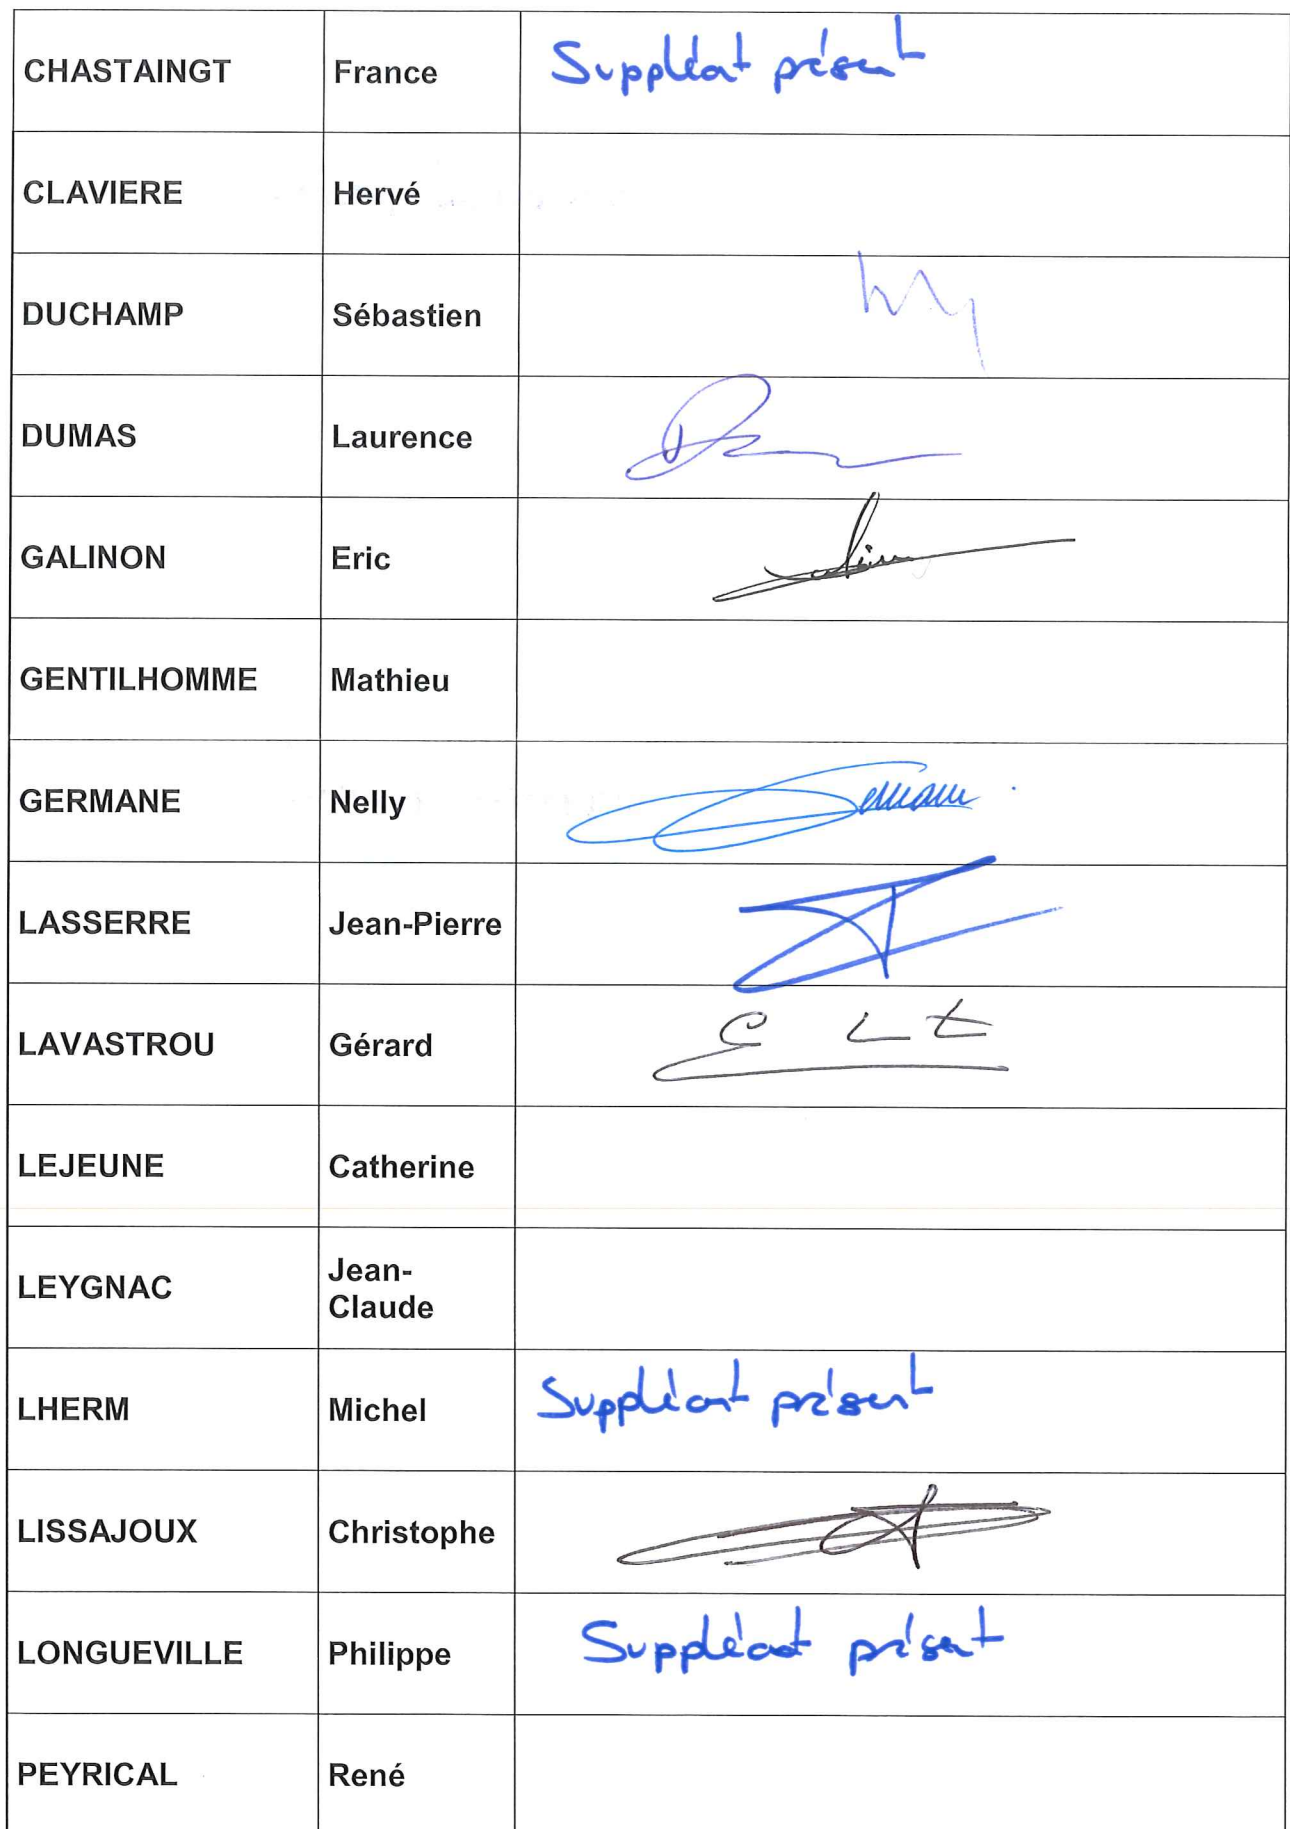 CHASTAINGT France Suppléant présent
CLAVIERE Hervé
DUCHAMP Sébastien
DUMAS Laurence
GALINON Eric
GENTILHOMME Mathieu
GERMANE Nelly
LASSERRE Jean-Pierre
LAVASTROU Gérard
LEJEUNE Catherine
LEYGNAC Jean-
Claude
LHERM Michel Suppléant présent
LISSAJOUX Christophe
LONGUEVILLE Philippe Suppléant présent
PEYRICAL René